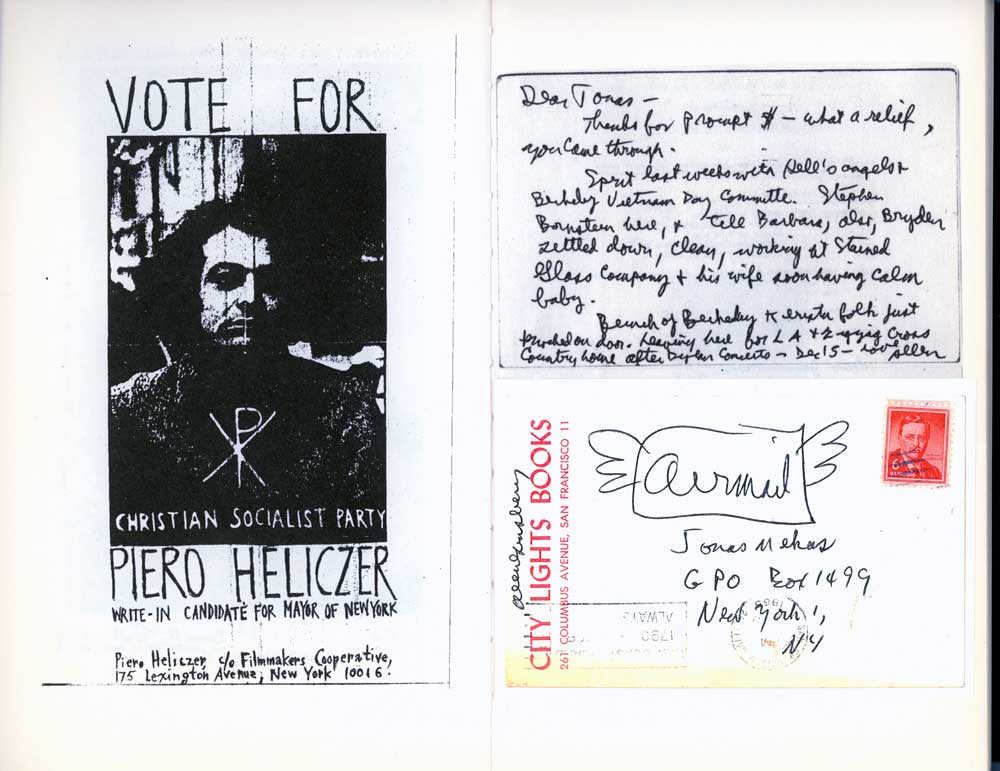 VOTE FOR
CHRISTIAN SOCIALIST PARTY
PIERO HELICZER
WRITE-IN CANDIDATE FOR MAYOR OF NEW YORK
Piero Heliczer, c/o Filmmakers Cooperative,
175 Lexington Avenue, New York 10016.
Dear Jonas —
Thanks for prompt $ — what a relief,
you came through.
Spent last weeks with Hell's angels +
Berkeley Vietnam Day Committe. Stephen
Bornstein here, + tell Barbara, also, Bryden
settled down, clean, working at Stained
Glass Company + his wife soon having calm
baby.
Bunch of Berkeley folk just
knocked on door. Leaving here for LA + zigzig Cross
Country home after Dylan Concerts — Dec 15 — love Allen
Allen Ginsberg
CITY LIGHTS BOOKS
261 COLUMBUS AVENUE, SAN FRANCISCO 11
airmail
Jonas Mekas
GPO Box 1499
New York 1,
NY